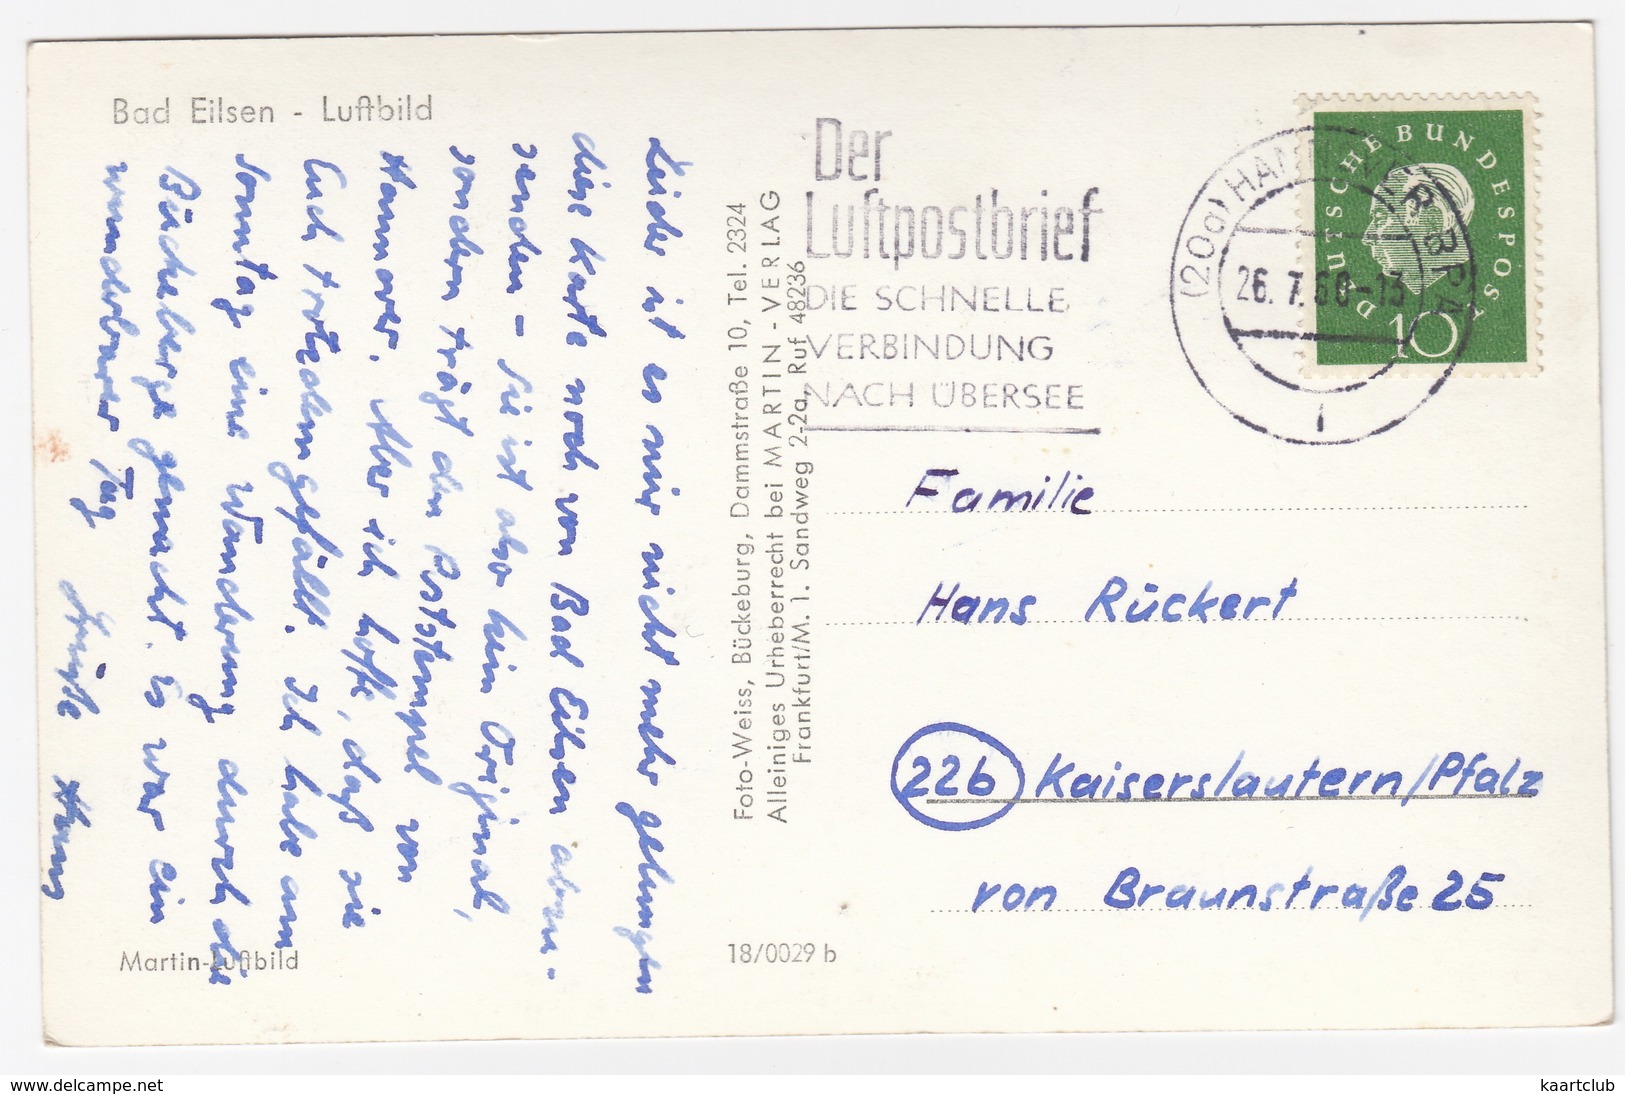 Bad Eilsen - Luftbild
Leider ist es mir nicht mehr gelungen
diese Karte noch von Bad Eilsen abzu-
senden - Sie ist also kein Original,
sondern trägt den Poststempel von
Hannover. Aber ich hoffe, daß sie
Euch trotzdem gefällt. Ich habe am
Sonntag eine Wanderung durch die
Bückeberge gemacht. Es war ein
wunderbarer Tag
Grüße
Martin-Luftbild
Foto-Weiss, Bückeburg, Dammstraße 10, Tel. 2324
Alleiniges Urheberrecht bei MARTIN-VERLAG
Frankfurt/M. 1. Sandweg 2-2a, Ruf 48236
18/0029 b
Der
Luftpostbrief
DIE SCHNELLE
VERBINDUNG
NACH ÜBERSEE
(20a) HANNOVER
26.7.60-13
DEUTSCHE BUNDESPOST
10
Familie
Hans Rückert
22b Kaiserslautern/Pfalz
von Braunstraße 25
https://www.delcampe.net
kaartclub